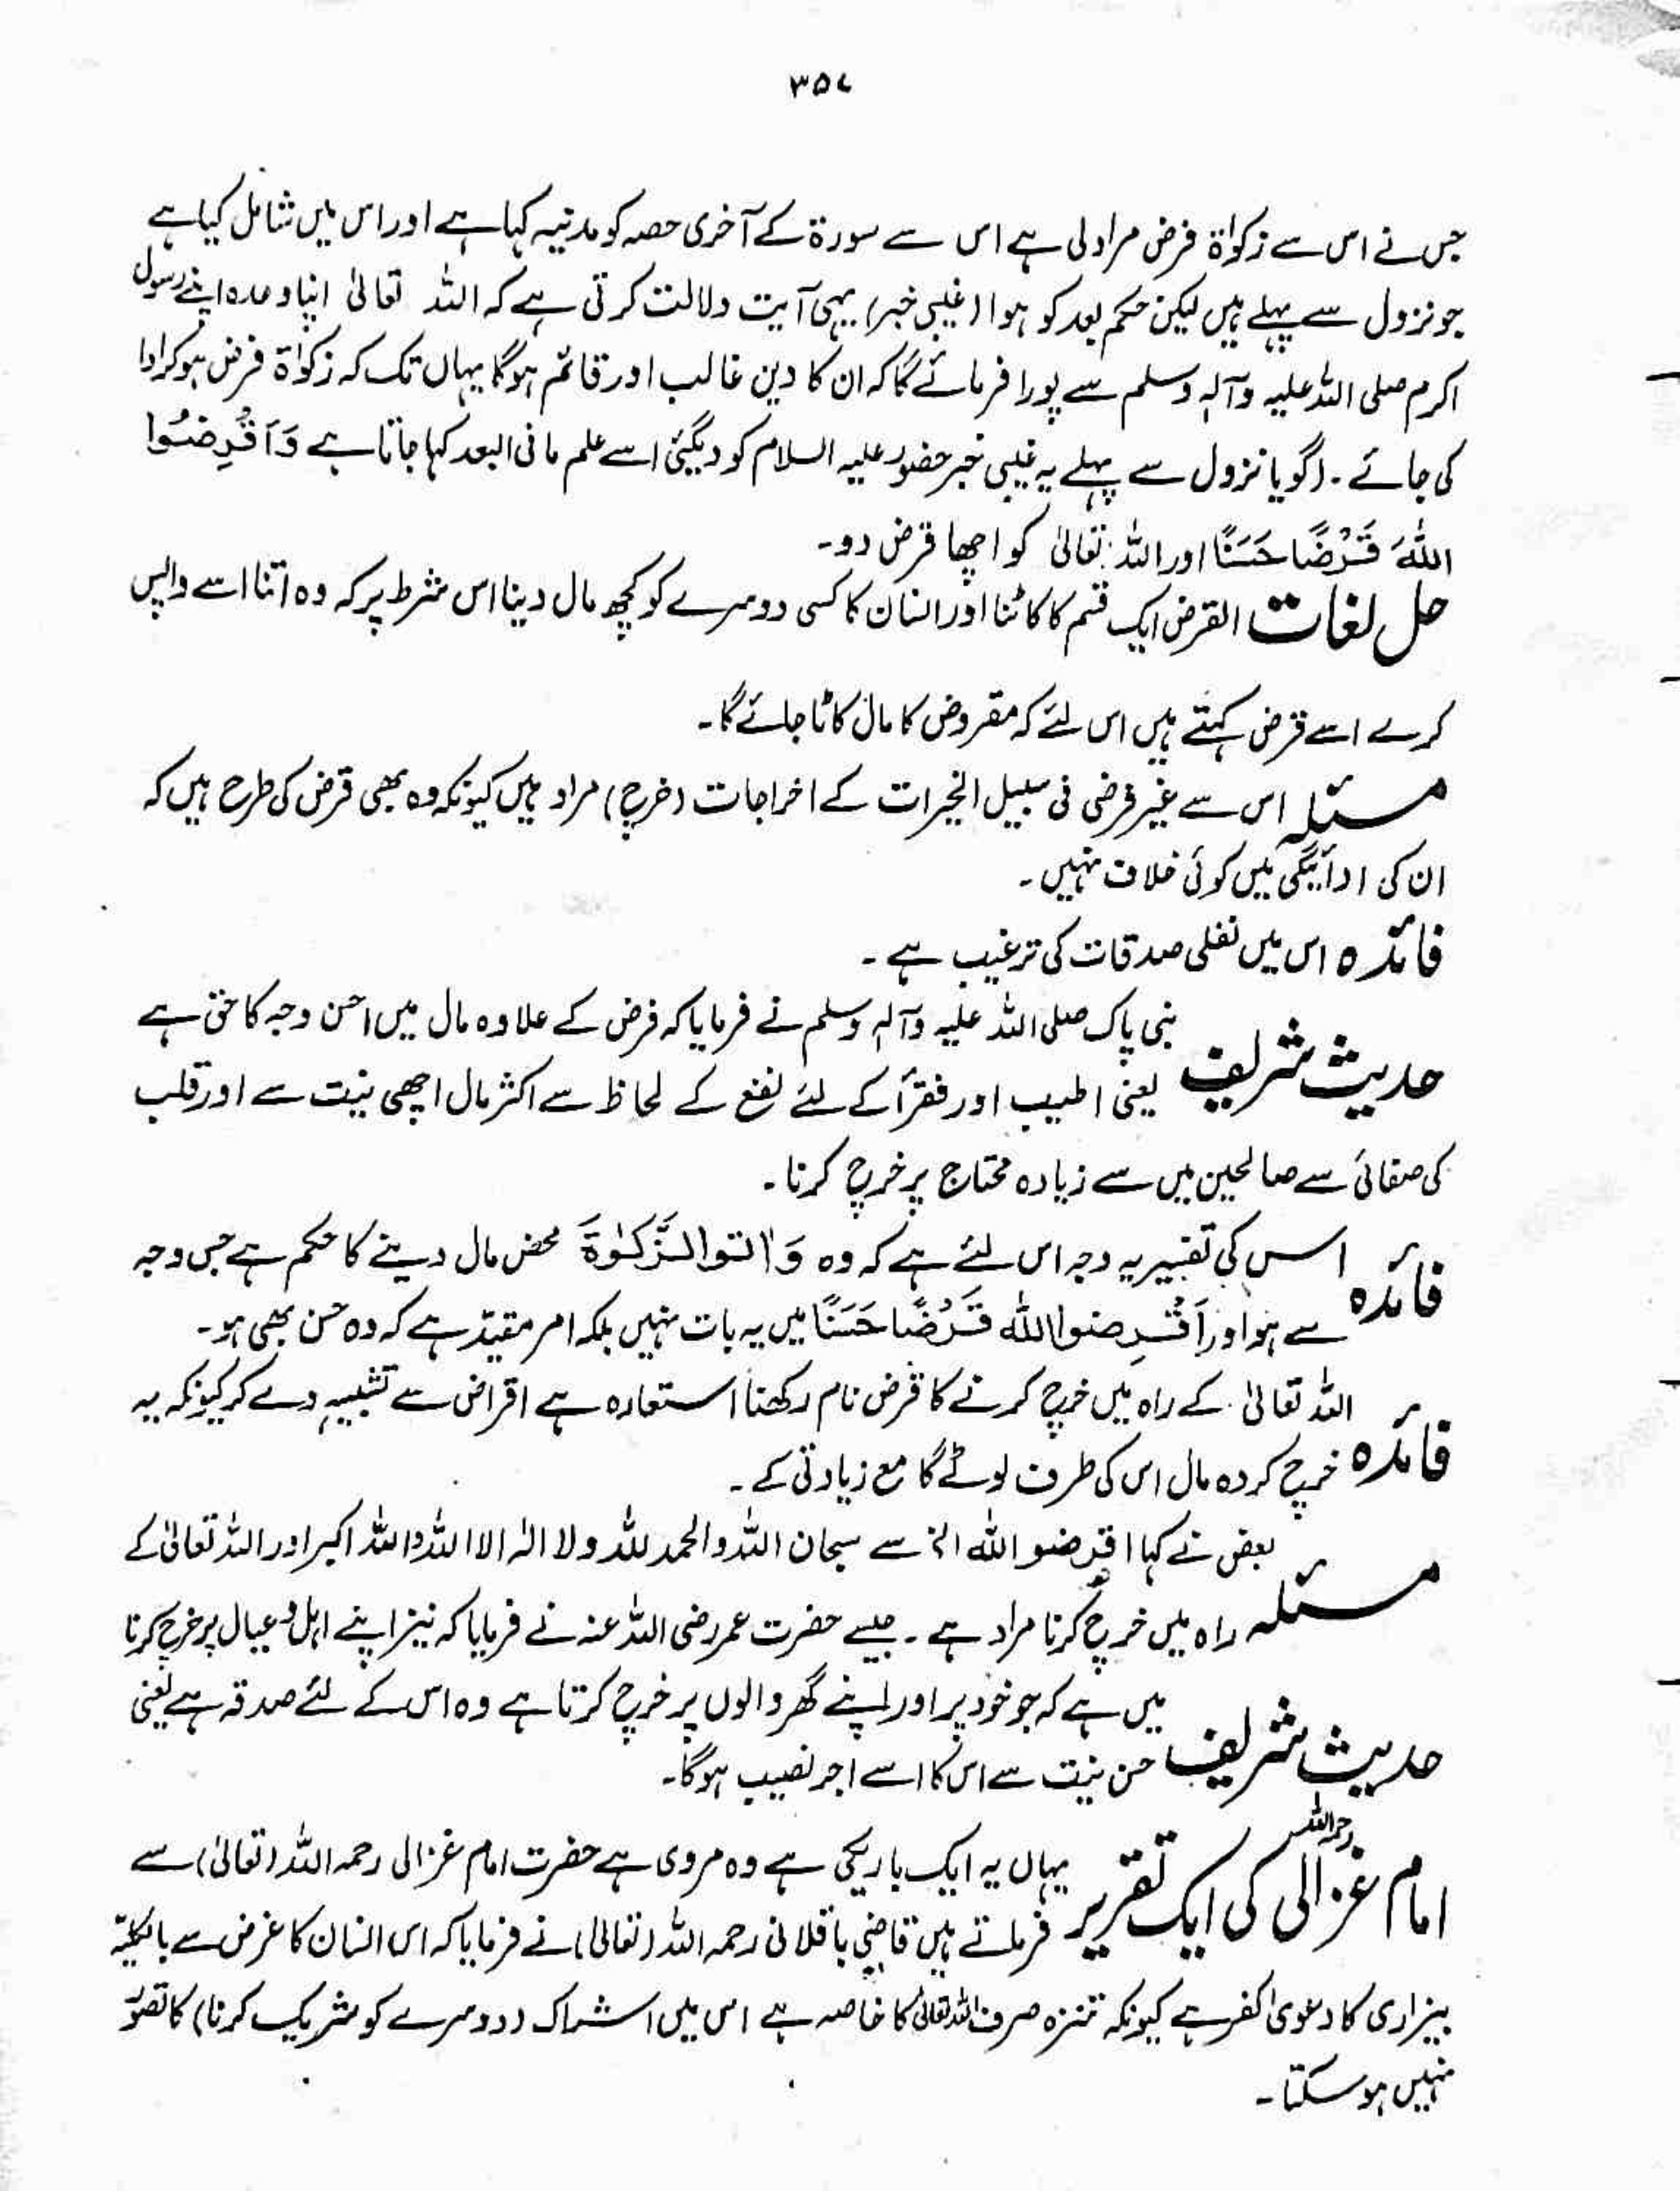 ۳۵۷
جس نے اس سے زکوٰۃ فرض مراد لی ہے اس سے سورۃ کے آخری حصہ کو مدنیہ کہا ہے اور اس میں شامل کیا ہے
جو نزول سے پہلے ہیں لیکن حکم بعد کو ہوا (غیبی خبر) یہی آیت دلالت کرتی ہے کہ اللہ تعالیٰ اپنا وعدہ اپنے رسول
اکرم صلی اللہ علیہ وآلہٖ وسلم سے پورا فرمائے گا کہ ان کا دین غالب اور قائم ہوگا یہاں تک کہ زکوٰۃ فرض ہوکر ادا
کی جائے ۔ (گویا نزول سے پہلے یہ غیبی خبر حضور علیہ السلام کو دیگئی اسے علم مافی البعد کہا جاتا ہے وَاَقْرِضُوا
اللّٰہَ قَرْضًا حَسَنًا اور اللہ تعالیٰ کو اچھا قرض دو۔
حل لغات القرض ایک قسم کا کاٹنا اور انسان کا کسی دوسرے کو کچھ مال دینا اس شرط پر کہ وہ اتنا اسے واپس
کرے اسے قرض کہتے ہیں اس لئے کہ مقروض کا مال کاٹا جائے گا۔
مسئلہ اس سے غیر فرضی فی سبیل الخیرات کے اخراجات (خرچ) مراد ہیں کیونکہ وہ بھی قرض کی طرح ہیں کہ
ان کی ادائیگی میں کوئی خلاف نہیں ۔
فائدہ اس میں نفلی صدقات کی ترغیب ہے ۔
حدیث شریف نبی پاک صلی اللہ علیہ وآلہٖ وسلم نے فرمایا کہ فرض کے علاوہ مال میں احسن وجہ کا حق ہے
یعنی اطیب اور فقرآ کے لئے نفع کے لحاظ سے اکثر مال اچھی نیت سے اور قلب
کی صفائی سے صالحین میں سے زیادہ محتاج پر خرچ کرنا ۔
فائدہ اس کی تفسیر یہ وجہ اس لئے ہے کہ وہ وَاٰتُوا الزَّکٰوۃَ محض مال دینے کا حکم ہے جس وجہ
سے ہو اور اَقْرِضُوا اللّٰہَ قَرْضًا حَسَنًا میں یہ بات نہیں بلکہ امر مقیّد ہے کہ وہ حسن بھی ہو۔
فائدہ اللہ تعالیٰ کے راہ میں خرچ کرنے کا قرض نام رکھنا استعارہ ہے اقراض سے تشبیہ دے کر کیونکہ یہ
خرچ کردہ مال اس کی طرف لوٹے گا مع زیادتی کے ۔
مسئلہ بعض نے کہا اقرضوا اللہ الخ سے سبحان اللہ والحمد للہ ولا الٰہ الا اللہ واللہ اکبر اور اللہ تعالیٰ کے
راہ میں خرچ کرنا مراد ہے ۔ جیسے حضرت عمر رضی اللہ عنہ نے فرمایا کہ نیز اپنے اہل و عیال پر خرچ کرنا
حدیث شریف میں ہے کہ جو خود پر اور اپنے گھر والوں پر خرچ کرتا ہے وہ اس کے لئے صدقہ ہے یعنی
حسن نیت سے اس کا اسے اجر نصیب ہوگا۔
امام غزالی رحمہ اللہ کی ایک تقریر یہاں یہ ایک باریکی ہے وہ مروی ہے حضرت امام غزالی رحمہ اللہ (تعالیٰ) سے
فرماتے ہیں قاضی باقلانی رحمہ اللہ (تعالیٰ) نے فرمایا کہ اس انسان کا غرض سے بالکلیّہ
بیزاری کا دعویٰ کفر ہے کیونکہ تنزہ صرف اللہ تعالیٰ کا خاصہ ہے اس میں اشتراک (دوسرے کو شریک کرنا) کا تصوّر
نہیں ہوسکتا ۔